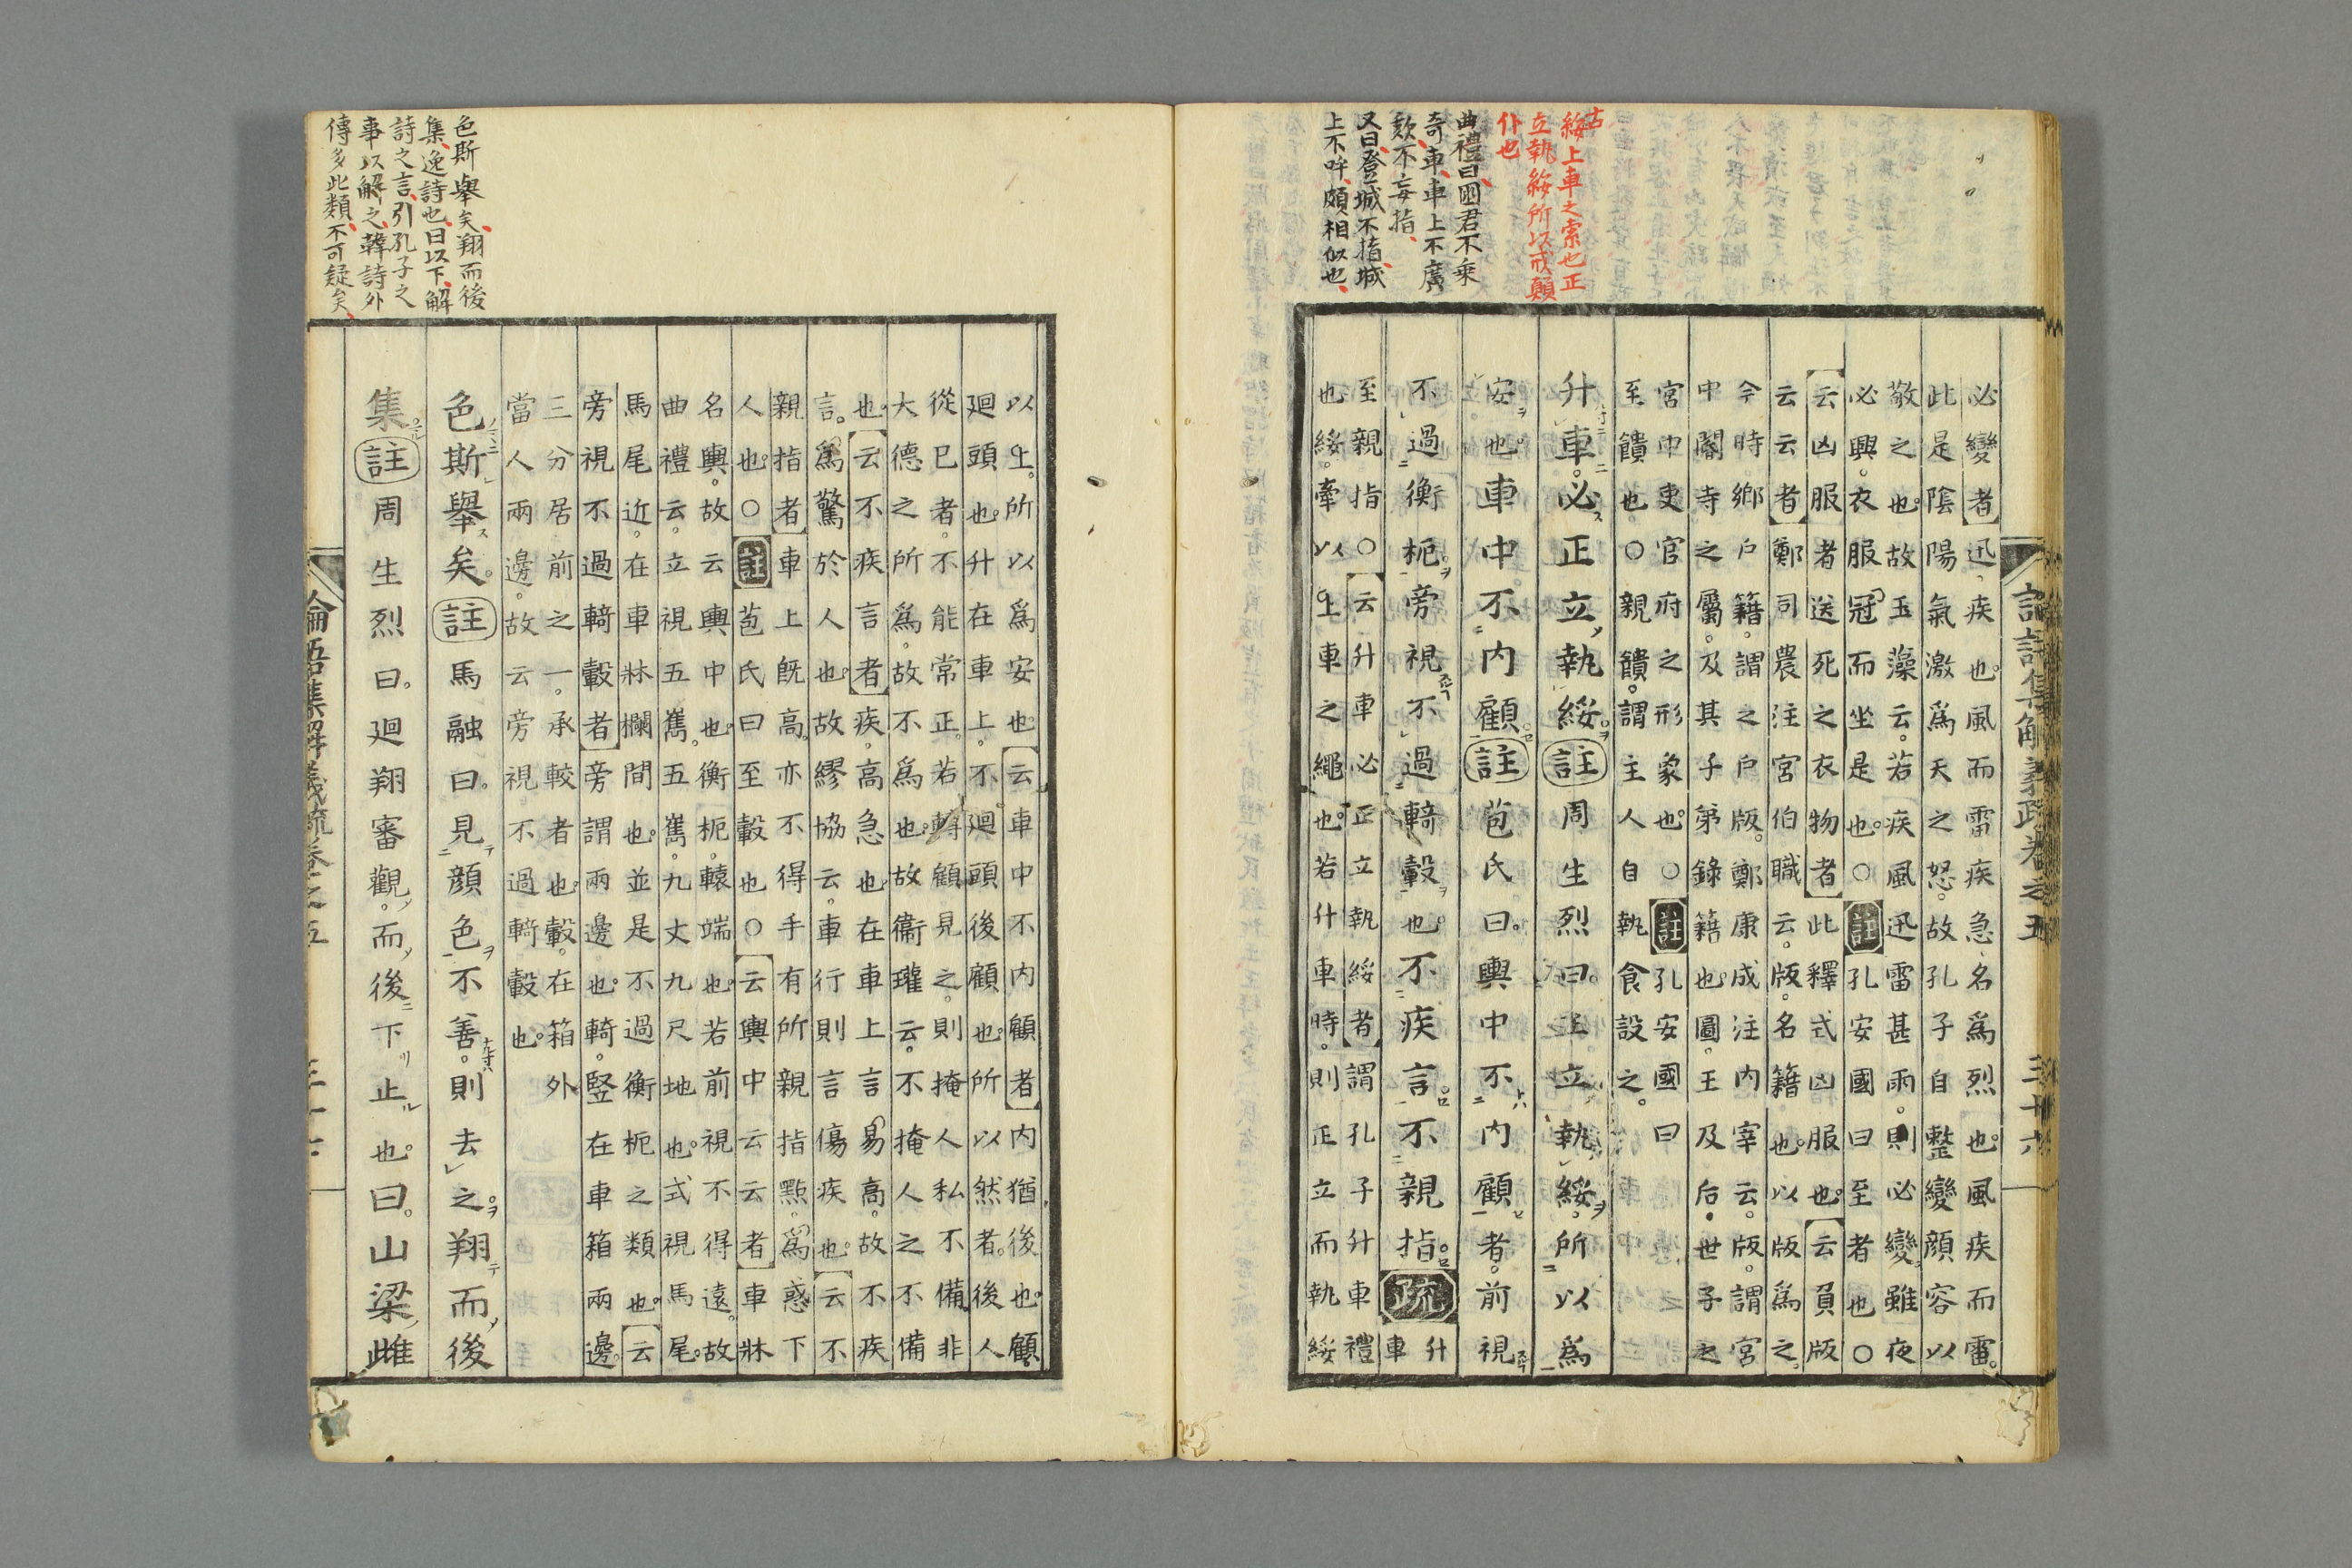 古
綏上車之索也正
立執綏所以戒顛
仆也
曲禮曰國君不乘
奇車車上不廣
欬不妄指
又曰登城不指城
上不呼頗相似也
論語集解義疏卷之五 三十六
必變者迅疾也。風而雷疾急名爲烈也。風疾而雷。
此是陰陽氣激爲天之怒。故孔子自整變顔容以
敬之也。故玉藻云。若疾風迅雷甚雨。則必變雖夜
必興。衣服冠而坐是也。○註孔安國曰至者也○
云凶服者送死之衣物者此釋式凶服也。云負版
云云者鄭司農注宮伯職云。版。名籍也。以版爲之。
今時鄉戸籍。謂之戸版。鄭康成注内宰云。版。謂宮
中閽寺之屬。及其子弟錄籍也。圖。王及后。世子之
宮中吏官府之形象也。○註孔安國曰
至饋也。○親饋。謂主人自執食設之。
升車。必正立執綏。註周生烈曰。正立執綏。所以爲
安也。車中不内顧。註苞氏曰。輿中不内顧者。前視
不過衡枙。旁視不過輢轂也。不疾言不親指。疏升
車
至親指○云升車必正立執綏者謂孔子升車禮
也綏。牽以上車之繩也。若升車時。則正立而執綏
以上。所以爲安也云車中不内顧者内猶後也。顧
廻頭也。升在車上。不廻頭後顧也。所以然者。後人
從已者。不能常正。若轉顧見之。則掩人私不備。非
大德之所爲。故不爲也。故衞瓘云。不掩人之不備
也。云不疾言者疾。高急也。在車上言易高。故不疾
言。爲驚於人也。故繆協云。車行則言傷疾也。云不
親指者車上既高。亦不得手有所親指點。爲惑下
人也。○註苞氏曰至轂也○云輿中云云者車牀
名輿。故云輿中也。衡枙。轅端也。若前視不得遠。故
曲禮云。立視五巂。五巂。九丈九尺地也。式視馬尾。
馬尾近。在車牀欄間也。並是不過衡枙之類也。云
旁視不過輢轂者旁謂兩邊也。輢。豎在車箱兩邊。
三分居前之一。承較者也。轂。在箱外
當人兩邊。故云旁視不過輢轂也。
色斯舉矣。註馬融曰。見顔色不善。則去之。翔而後
集。註周生烈曰。廻翔審觀。而後下止也。曰。山梁雌
論語集解義疏卷之五
色斯舉矣翔而後
集逸詩也曰以下解
詩之言引孔子之
事以解之韓詩外
傳多此類不可疑矣